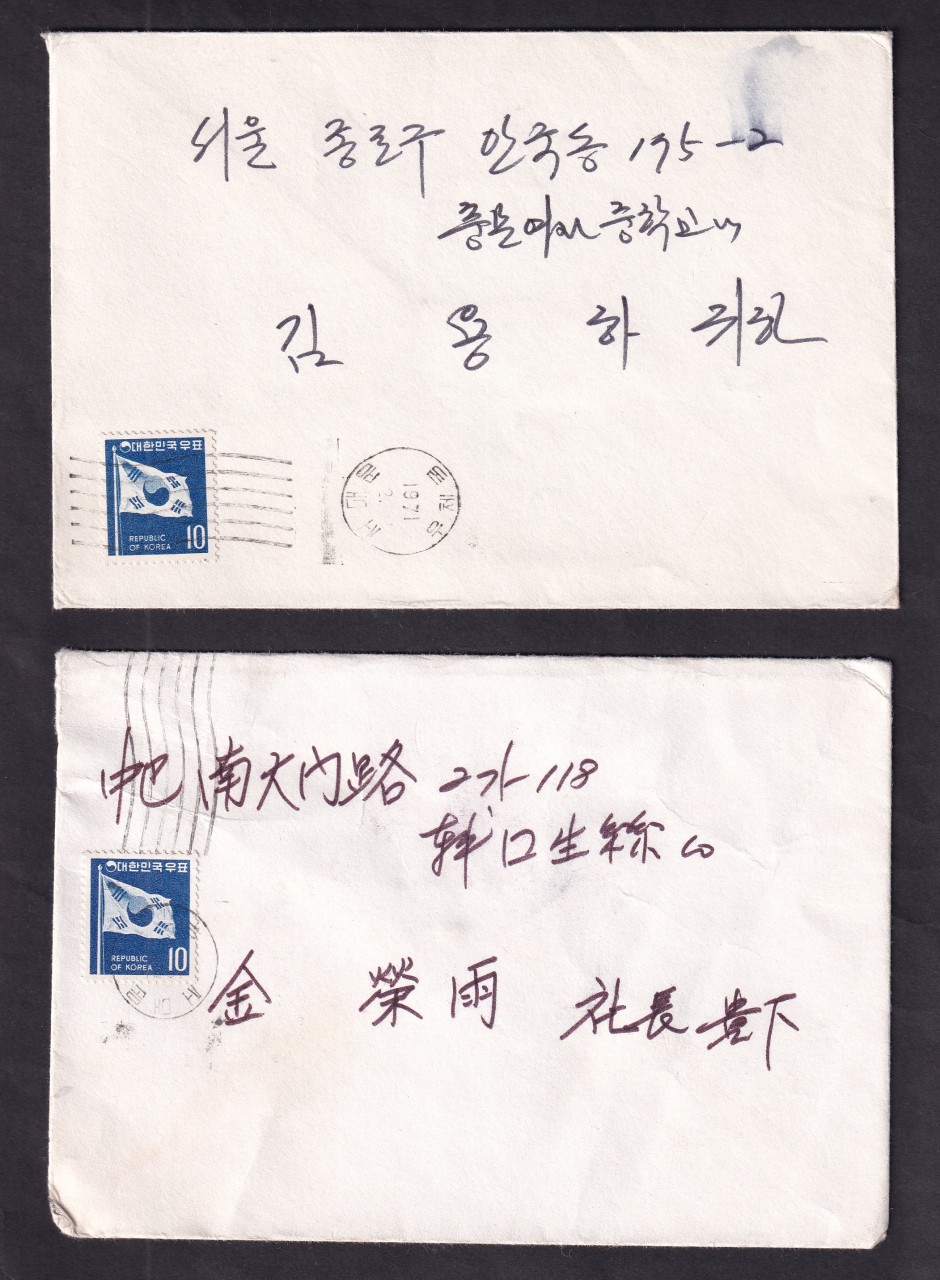 서울 종로구 안국동 175-2
중문여자중학교내
김 용 하 귀하
대한민국우표
REPUBLIC
OF KOREA 10
서대문
1971
우체국
中巴 南大門路 2가 118
韓口生絲 ㈇
대한민국우표
REPUBLIC
OF KOREA 10
서대문
金 榮雨 社長 貴下